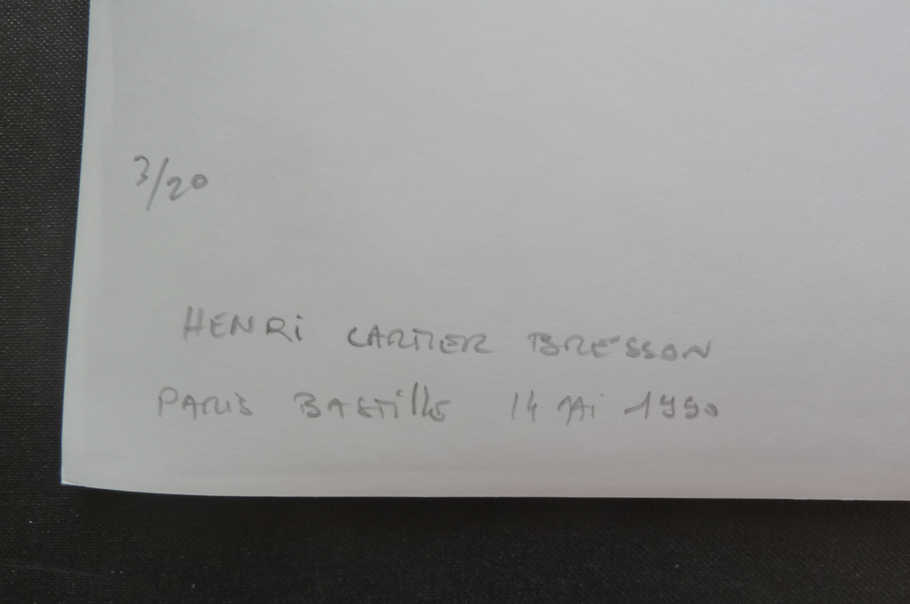 3/20
HENRi CARTIER BRESSON
PARIS BASTille 14 MAi 1990